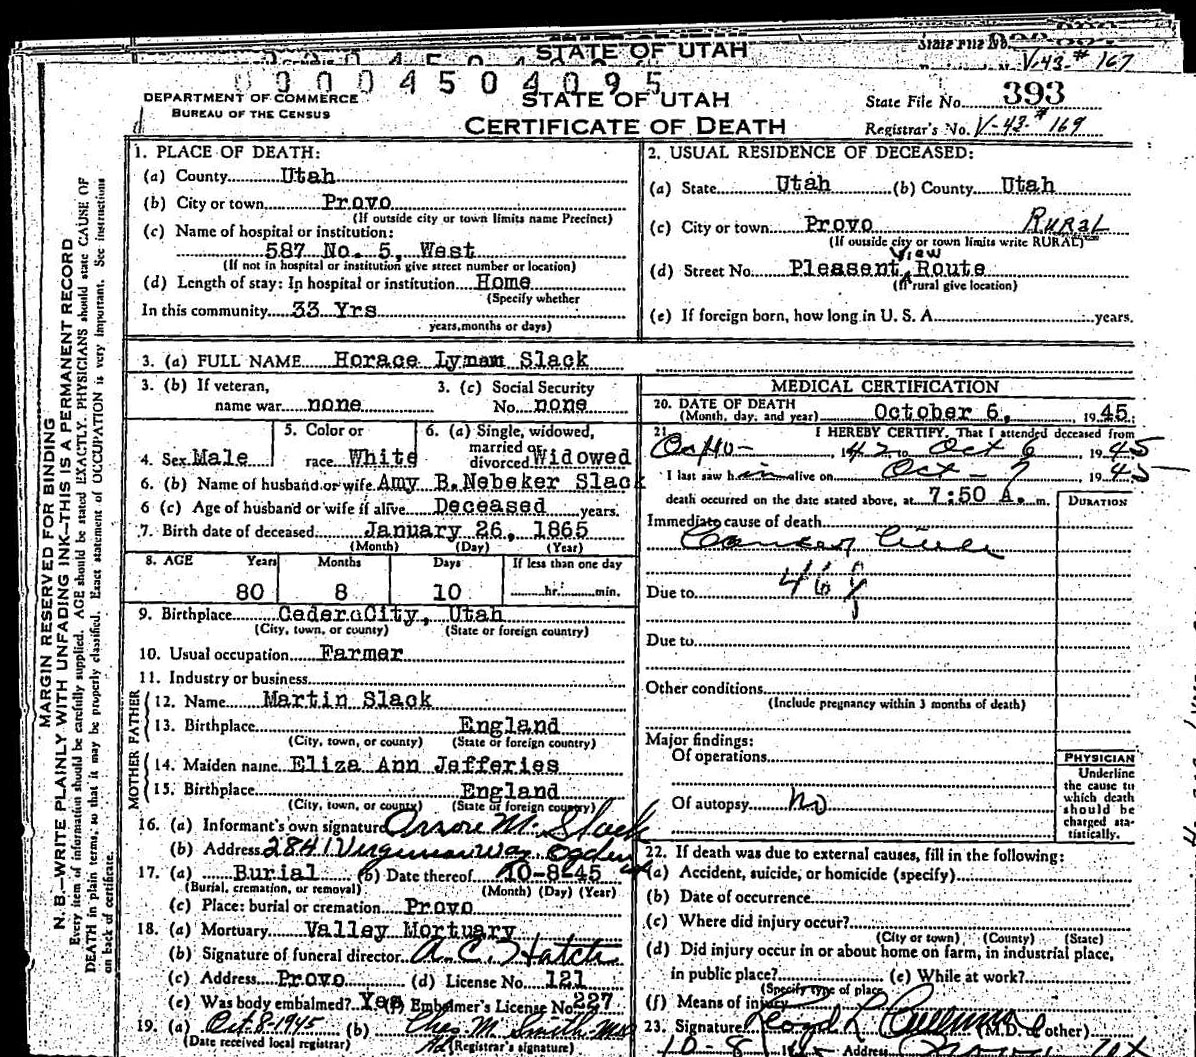 STATE OF UTAH
State File No.
V-43-# 167
0 0 0 0 4 5 0 4 0 9 5
DEPARTMENT OF COMMERCE
BUREAU OF THE CENSUS
STATE OF UTAH
CERTIFICATE OF DEATH
State File No. 393
Registrar's No. V-43-# 169
MARGIN RESERVED FOR BINDING
N. B.—WRITE PLAINLY WITH UNFADING INK—THIS IS A PERMANENT RECORD
Every item of information should be carefully supplied. AGE should be stated EXACTLY. PHYSICIANS should state CAUSE OF
DEATH in plain terms, so that it may be properly classified. Exact statement of OCCUPATION is very important. See instructions
on back of certificate.
1. PLACE OF DEATH:
(a) County Utah
(b) City or town Provo
(If outside city or town limits name Precinct)
(c) Name of hospital or institution:
587 No. 5, West
(If not in hospital or institution give street number or location)
(d) Length of stay: In hospital or institution Home
(Specify whether
In this community 33 Yrs
years, months or days)
2. USUAL RESIDENCE OF DECEASED:
(a) State Utah (b) County Utah
(c) City or town Provo Rural
(If outside city or town limits write RURAL)
View
(d) Street No. Pleasent Route
(If rural give location)
(e) If foreign born, how long in U. S. A. years.
3. (a) FULL NAME Horace Lynam Slack
3. (b) If veteran,
name war none
3. (c) Social Security
No. none
4. Sex Male
5. Color or
race White
6. (a) Single, widowed,
married or
divorced Widowed
6. (b) Name of husband or wife Amy B. Nebeker Slack
6 (c) Age of husband or wife if alive Deceased years.
7. Birth date of deceased January 26, 1865
(Month) (Day) (Year)
8. AGE Years Months Days If less than one day
80 8 10 hr. min.
9. Birthplace Ceder City, Utah
(City, town, or county) (State or foreign country)
10. Usual occupation Farmer
11. Industry or business
FATHER
12. Name Martin Slack
13. Birthplace England
(City, town, or county) (State or foreign country)
MOTHER
14. Maiden name Eliza Ann Jefferies
15. Birthplace England
(City, town, or county) (State or foreign country)
16. (a) Informant's own signature M. Slack
(b) Address 2841 Virginia Way Ogden
17. (a) Burial (b) Date thereof 10-8-45
(Burial, cremation, or removal) (Month) (Day) (Year)
(c) Place: burial or cremation Provo
18. (a) Mortuary Valley Mortuary
(b) Signature of funeral director A. C. Hatch
(c) Address Provo (d) License No. 121
(e) Was body embalmed? Yes (f) Embalmer's License No. 227
19. (a) Oct. 8-1945 (b) Chas M. Smith MD
(Date received local registrar) (Registrar's signature)
MEDICAL CERTIFICATION
20. DATE OF DEATH
(Month, day, and year) October 6, 1945
21. I HEREBY CERTIFY, That I attended deceased from
1942 to Oct 6 1945
I last saw him alive on Oct - 1945
death occurred on the date stated above, at 7:50 A. m.
DURATION
Immediate cause of death
Cancer liver
Due to 46
Due to
Other conditions
(Include pregnancy within 3 months of death)
Major findings:
Of operations
Of autopsy no
PHYSICIAN
Underline
the cause to
which death
should be
charged sta-
tistically.
22. If death was due to external causes, fill in the following:
(a) Accident, suicide, or homicide (specify)
(b) Date of occurrence
(c) Where did injury occur?
(City or town) (County) (State)
(d) Did injury occur in or about home on farm, in industrial place,
in public place? (e) While at work?
(Specify type of place)
(f) Means of injury
23. Signature Lloyd L. Cullimore (M.D. or other)
10-8 Address